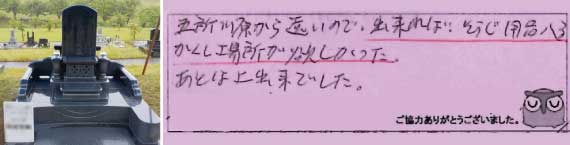 五所川原から遠いので、出来れば、そうじ用品入る
かくし場所が欲しかった。
あとは上出来でした。
ご協力ありがとうございました。